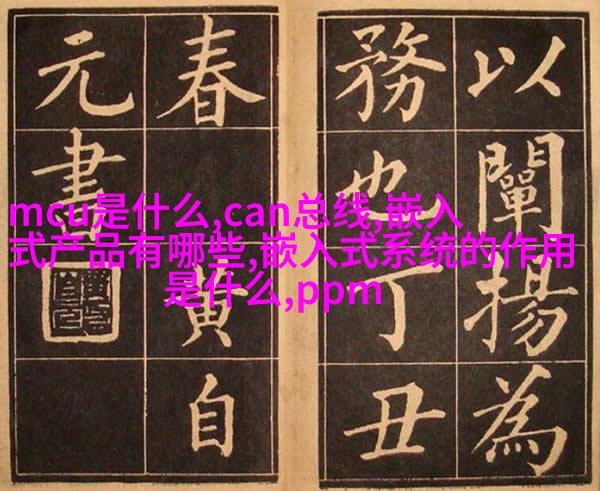 以闡揚為
務也丁丑
春
黃自
元書
mcu是什么,can总线,嵌入
式产品有哪些,嵌入式系统的作用
是什么,ppm